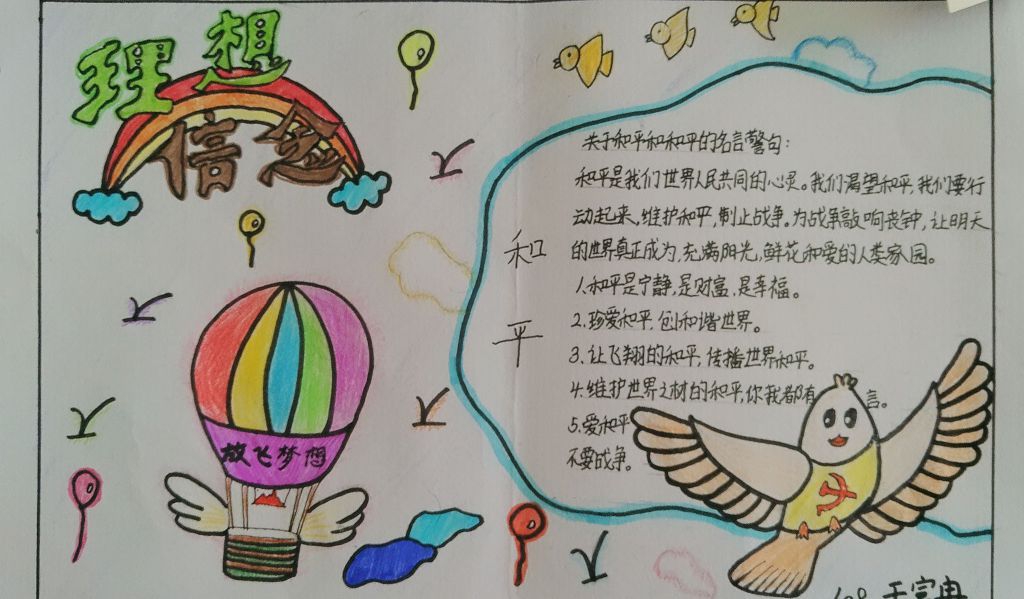 理想
信念
放飞梦想
和平
关于和平和和平的名言警句:
和平是我们世界人民共同的心灵。我们渴望和平,我们要行
动起来,维护和平,制止战争,为战争敲响丧钟,让明天
的世界真正成为,充满阳光,鲜花和爱的人类家园。
1.和平是宁静,是财富,是幸福。
2.珍爱和平,创和谐世界。
3.让飞翔的和平,传播世界和平。
4.维护世界之材的和平,你我都有 言。
5.爱和平
不要战争。